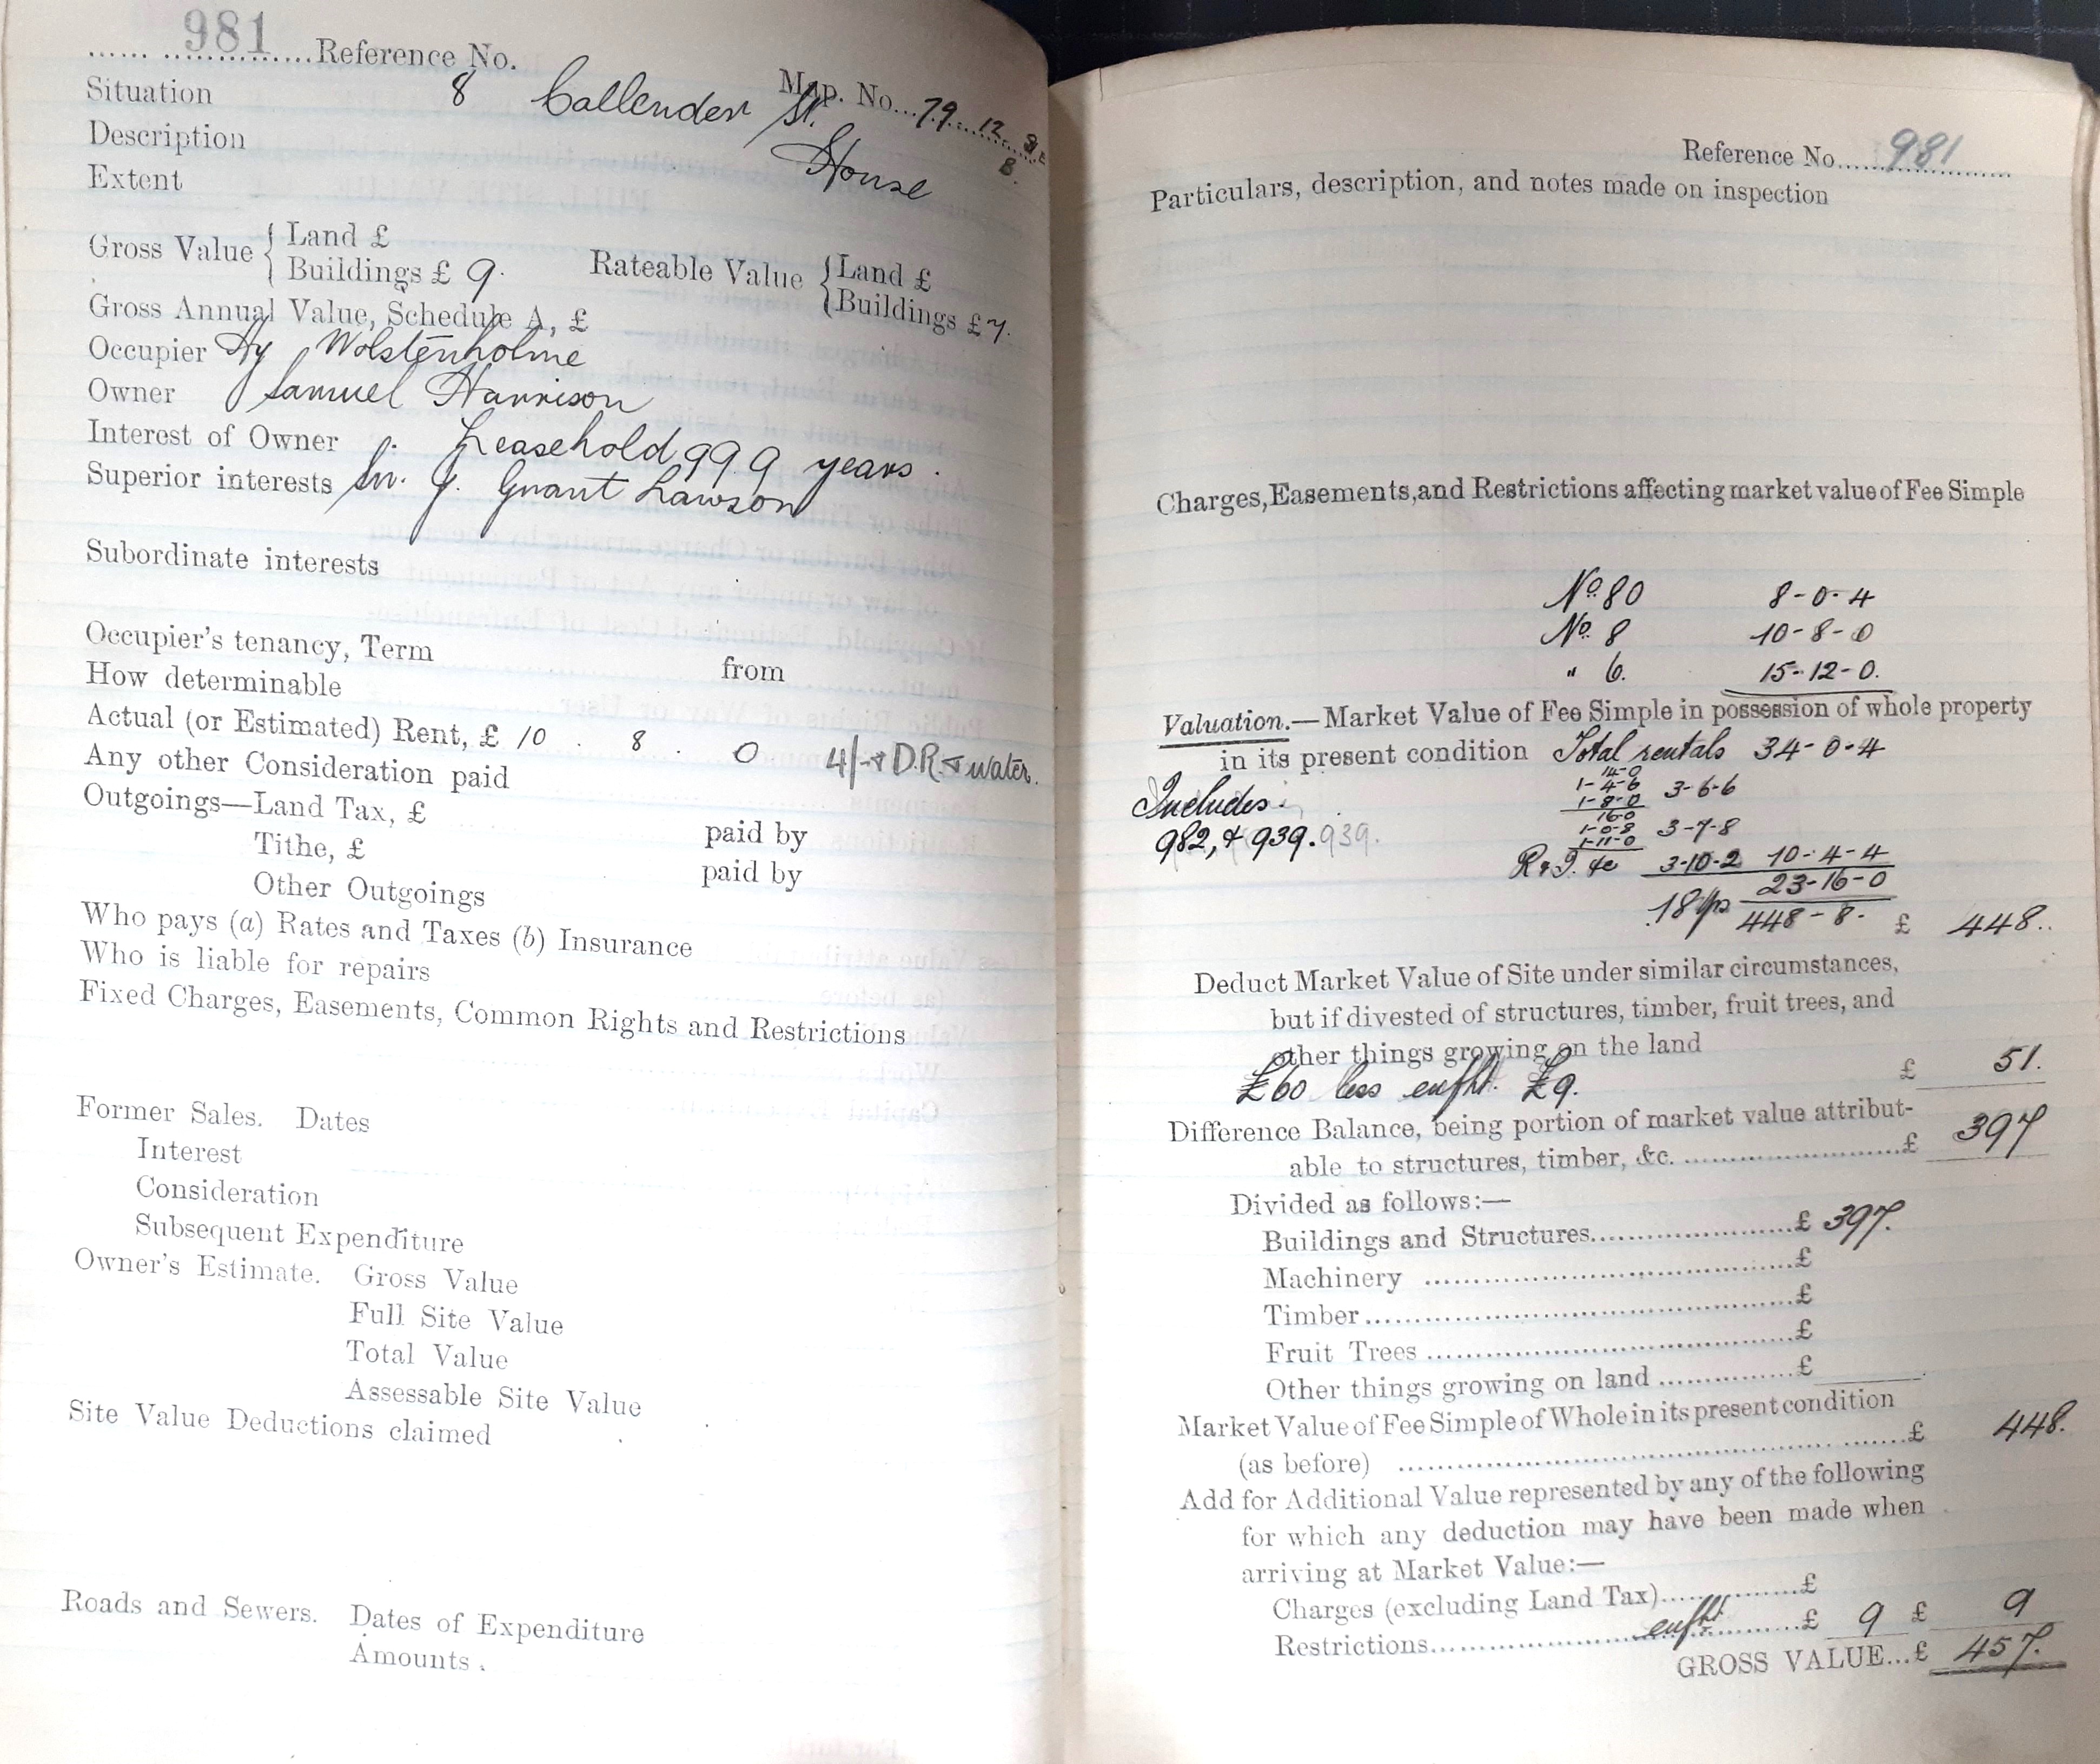 981
Reference No.
Map. No. 79 12 SE
8.
Situation 8 Callender St.
Description House
Extent
Gross Value { Land £
Buildings £ 9.
Rateable Value { Land £
Buildings £ 7.
Gross Annual Value, Schedule A, £
Occupier Hy Wolstenholme
Owner Samuel Harrison
Interest of Owner Leasehold 999 years.
Superior interests Sir J. Grant Lawson
Subordinate interests
Occupier's tenancy, Term from
How determinable
Actual (or Estimated) Rent, £ 10 . 8 . 0 4/- & D.R. & water.
Any other Consideration paid
Outgoings—Land Tax, £ paid by
Tithe, £ paid by
Other Outgoings
Who pays (a) Rates and Taxes (b) Insurance
Who is liable for repairs
Fixed Charges, Easements, Common Rights and Restrictions
Former Sales. Dates
Interest
Consideration
Subsequent Expenditure
Owner's Estimate. Gross Value
Full Site Value
Total Value
Assessable Site Value
Site Value Deductions claimed
Roads and Sewers. Dates of Expenditure
Amounts.
Reference No. 981
Particulars, description, and notes made on inspection
Charges, Easements, and Restrictions affecting market value of Fee Simple
No. 80 8-0-4
No. 8 10-8-0
" 6. 15-12-0.
Valuation.—Market Value of Fee Simple in possession of whole property
in its present condition Total rentals 34-0-4
14-0
1-4-6 3-6-6
1-8-0
Includes.
16-0
1-0-8 3-7-8
982, & 939. 939.
1-11-0
R & I. &c 3-10-2 10-4-4
23-16-0
18 yp 448-8- £ 448..
Deduct Market Value of Site under similar circumstances,
but if divested of structures, timber, fruit trees, and
other things growing on the land
£60 less enfht. £9. £ 51.
Difference Balance, being portion of market value attribut-
able to structures, timber, &c. £ 397
Divided as follows:—
Buildings and Structures £ 397.
Machinery £
Timber £
Fruit Trees £
Other things growing on land £
Market Value of Fee Simple of Whole in its present condition
(as before) £ 448.
Add for Additional Value represented by any of the following
for which any deduction may have been made when
arriving at Market Value:—
Charges (excluding Land Tax) £
Restrictions enfht. £ 9 £ 9
GROSS VALUE...£ 457.